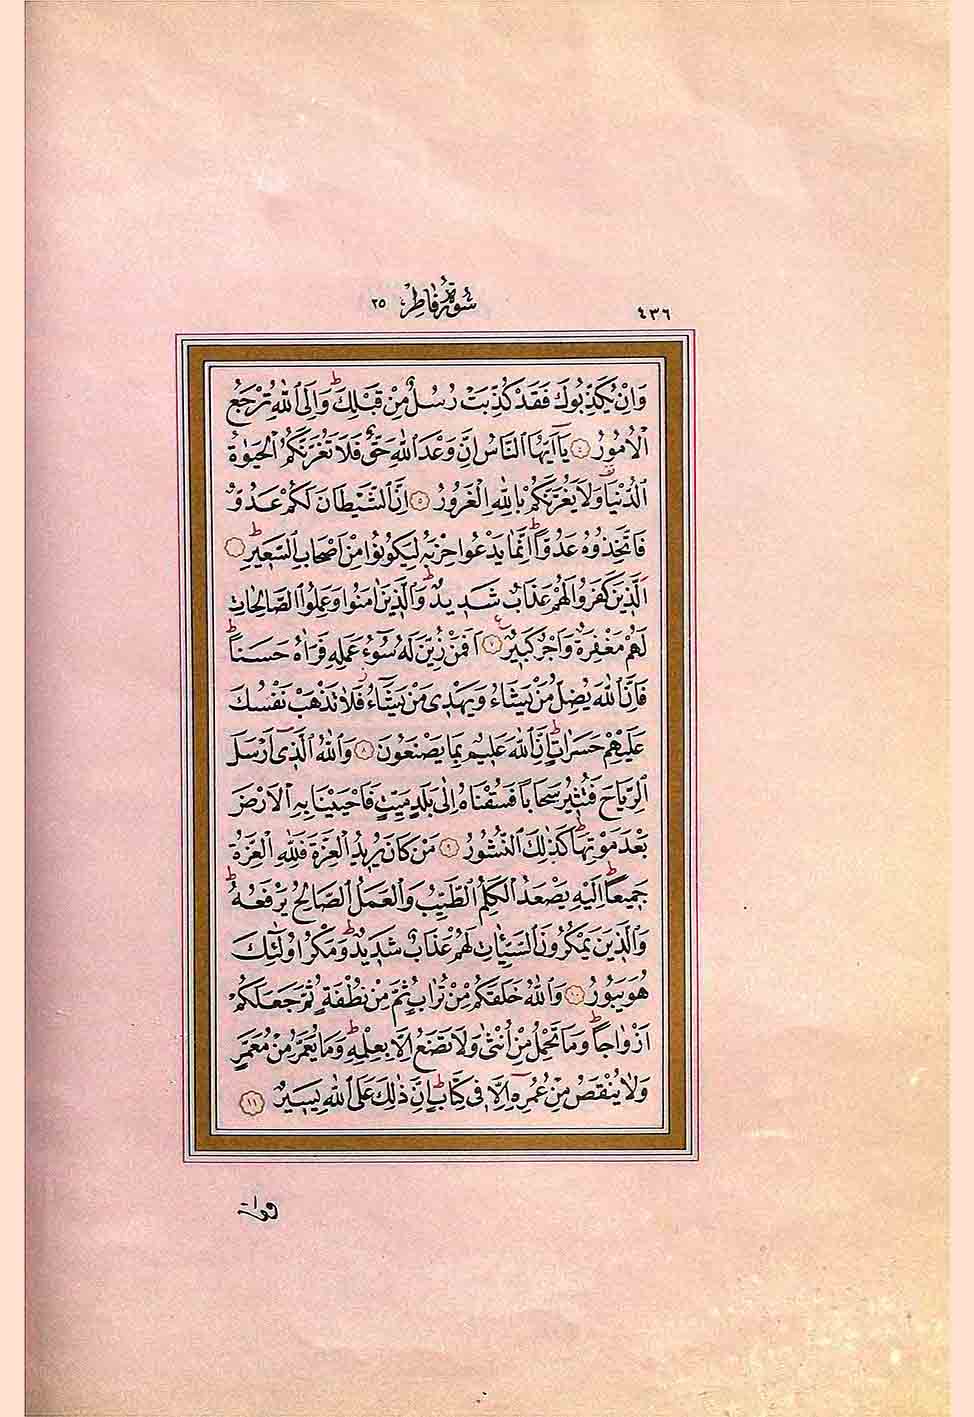 ٤٣٦ سُورَةُ فَاطِرٍ ٣٥
وَاِنْ يُكَذِّبُوكَ فَقَدْ كُذِّبَتْ رُسُلٌ مِنْ قَبْلِكَۜ وَاِلَى اللّٰهِ تُرْجَعُ
الْاُمُورُ ٤ يَٓا اَيُّهَا النَّاسُ اِنَّ وَعْدَ اللّٰهِ حَقٌّ فَلَا تَغُرَّنَّكُمُ الْحَيٰوةُ
الدُّنْيَا وَلَا يَغُرَّنَّكُمْ بِاللّٰهِ الْغَرُورُ ٥ اِنَّ الشَّيْطَانَ لَكُمْ عَدُوٌّ
فَاتَّخِذُوهُ عَدُوًّاۜ اِنَّمَا يَدْعُوا حِزْبَهُ لِيَكُونُوا مِنْ اَصْحَابِ السَّعٖيرِۜ
اَلَّذٖينَ كَفَرُوا لَهُمْ عَذَابٌ شَدٖيدٌۜ وَالَّذٖينَ اٰمَنُوا وَعَمِلُوا الصَّالِحَاتِ
لَهُمْ مَغْفِرَةٌ وَاَجْرٌ كَبٖيرٌ ٧ اَفَمَنْ زُيِّنَ لَهُ سُٓوءُ عَمَلِهٖ فَرَاٰهُ حَسَنًاۜ
فَاِنَّ اللّٰهَ يُضِلُّ مَنْ يَشَٓاءُ وَيَهْدٖي مَنْ يَشَٓاءُ فَلَا تَذْهَبْ نَفْسُكَ
عَلَيْهِمْ حَسَرَاتٍۜ اِنَّ اللّٰهَ عَلٖيمٌ بِمَا يَصْنَعُونَ ٨ وَاللّٰهُ الَّذٖٓي اَرْسَلَ
الرِّيَاحَ فَتُثٖيرُ سَحَابًا فَسُقْنَاهُ اِلٰى بَلَدٍ مَيِّتٍ فَاَحْيَيْنَا بِهِ الْاَرْضَ
بَعْدَ مَوْتِهَاۜ كَذٰلِكَ النُّشُورُ ٩ مَنْ كَانَ يُرٖيدُ الْعِزَّةَ فَلِلّٰهِ الْعِزَّةُ
جَمٖيعًاۜ اِلَيْهِ يَصْعَدُ الْكَلِمُ الطَّيِّبُ وَالْعَمَلُ الصَّالِحُ يَرْفَعُهُۜ
وَالَّذٖينَ يَمْكُرُونَ السَّيِّـَٔاتِ لَهُمْ عَذَابٌ شَدٖيدٌۜ وَمَكْرُ اُو۬لٰٓئِكَ
هُوَ يَبُورُ ١٠ وَاللّٰهُ خَلَقَكُمْ مِنْ تُرَابٍ ثُمَّ مِنْ نُطْفَةٍ ثُمَّ جَعَلَكُمْ
اَزْوَاجًاۜ وَمَا تَحْمِلُ مِنْ اُنْثٰى وَلَا تَضَعُ اِلَّا بِعِلْمِهٖۜ وَمَا يُعَمَّرُ مِنْ مُعَمَّرٍ
وَلَا يُنْقَصُ مِنْ عُمُرِهٖٓ اِلَّا فٖي كِتَابٍۜ اِنَّ ذٰلِكَ عَلَى اللّٰهِ يَسٖيرٌ ١١